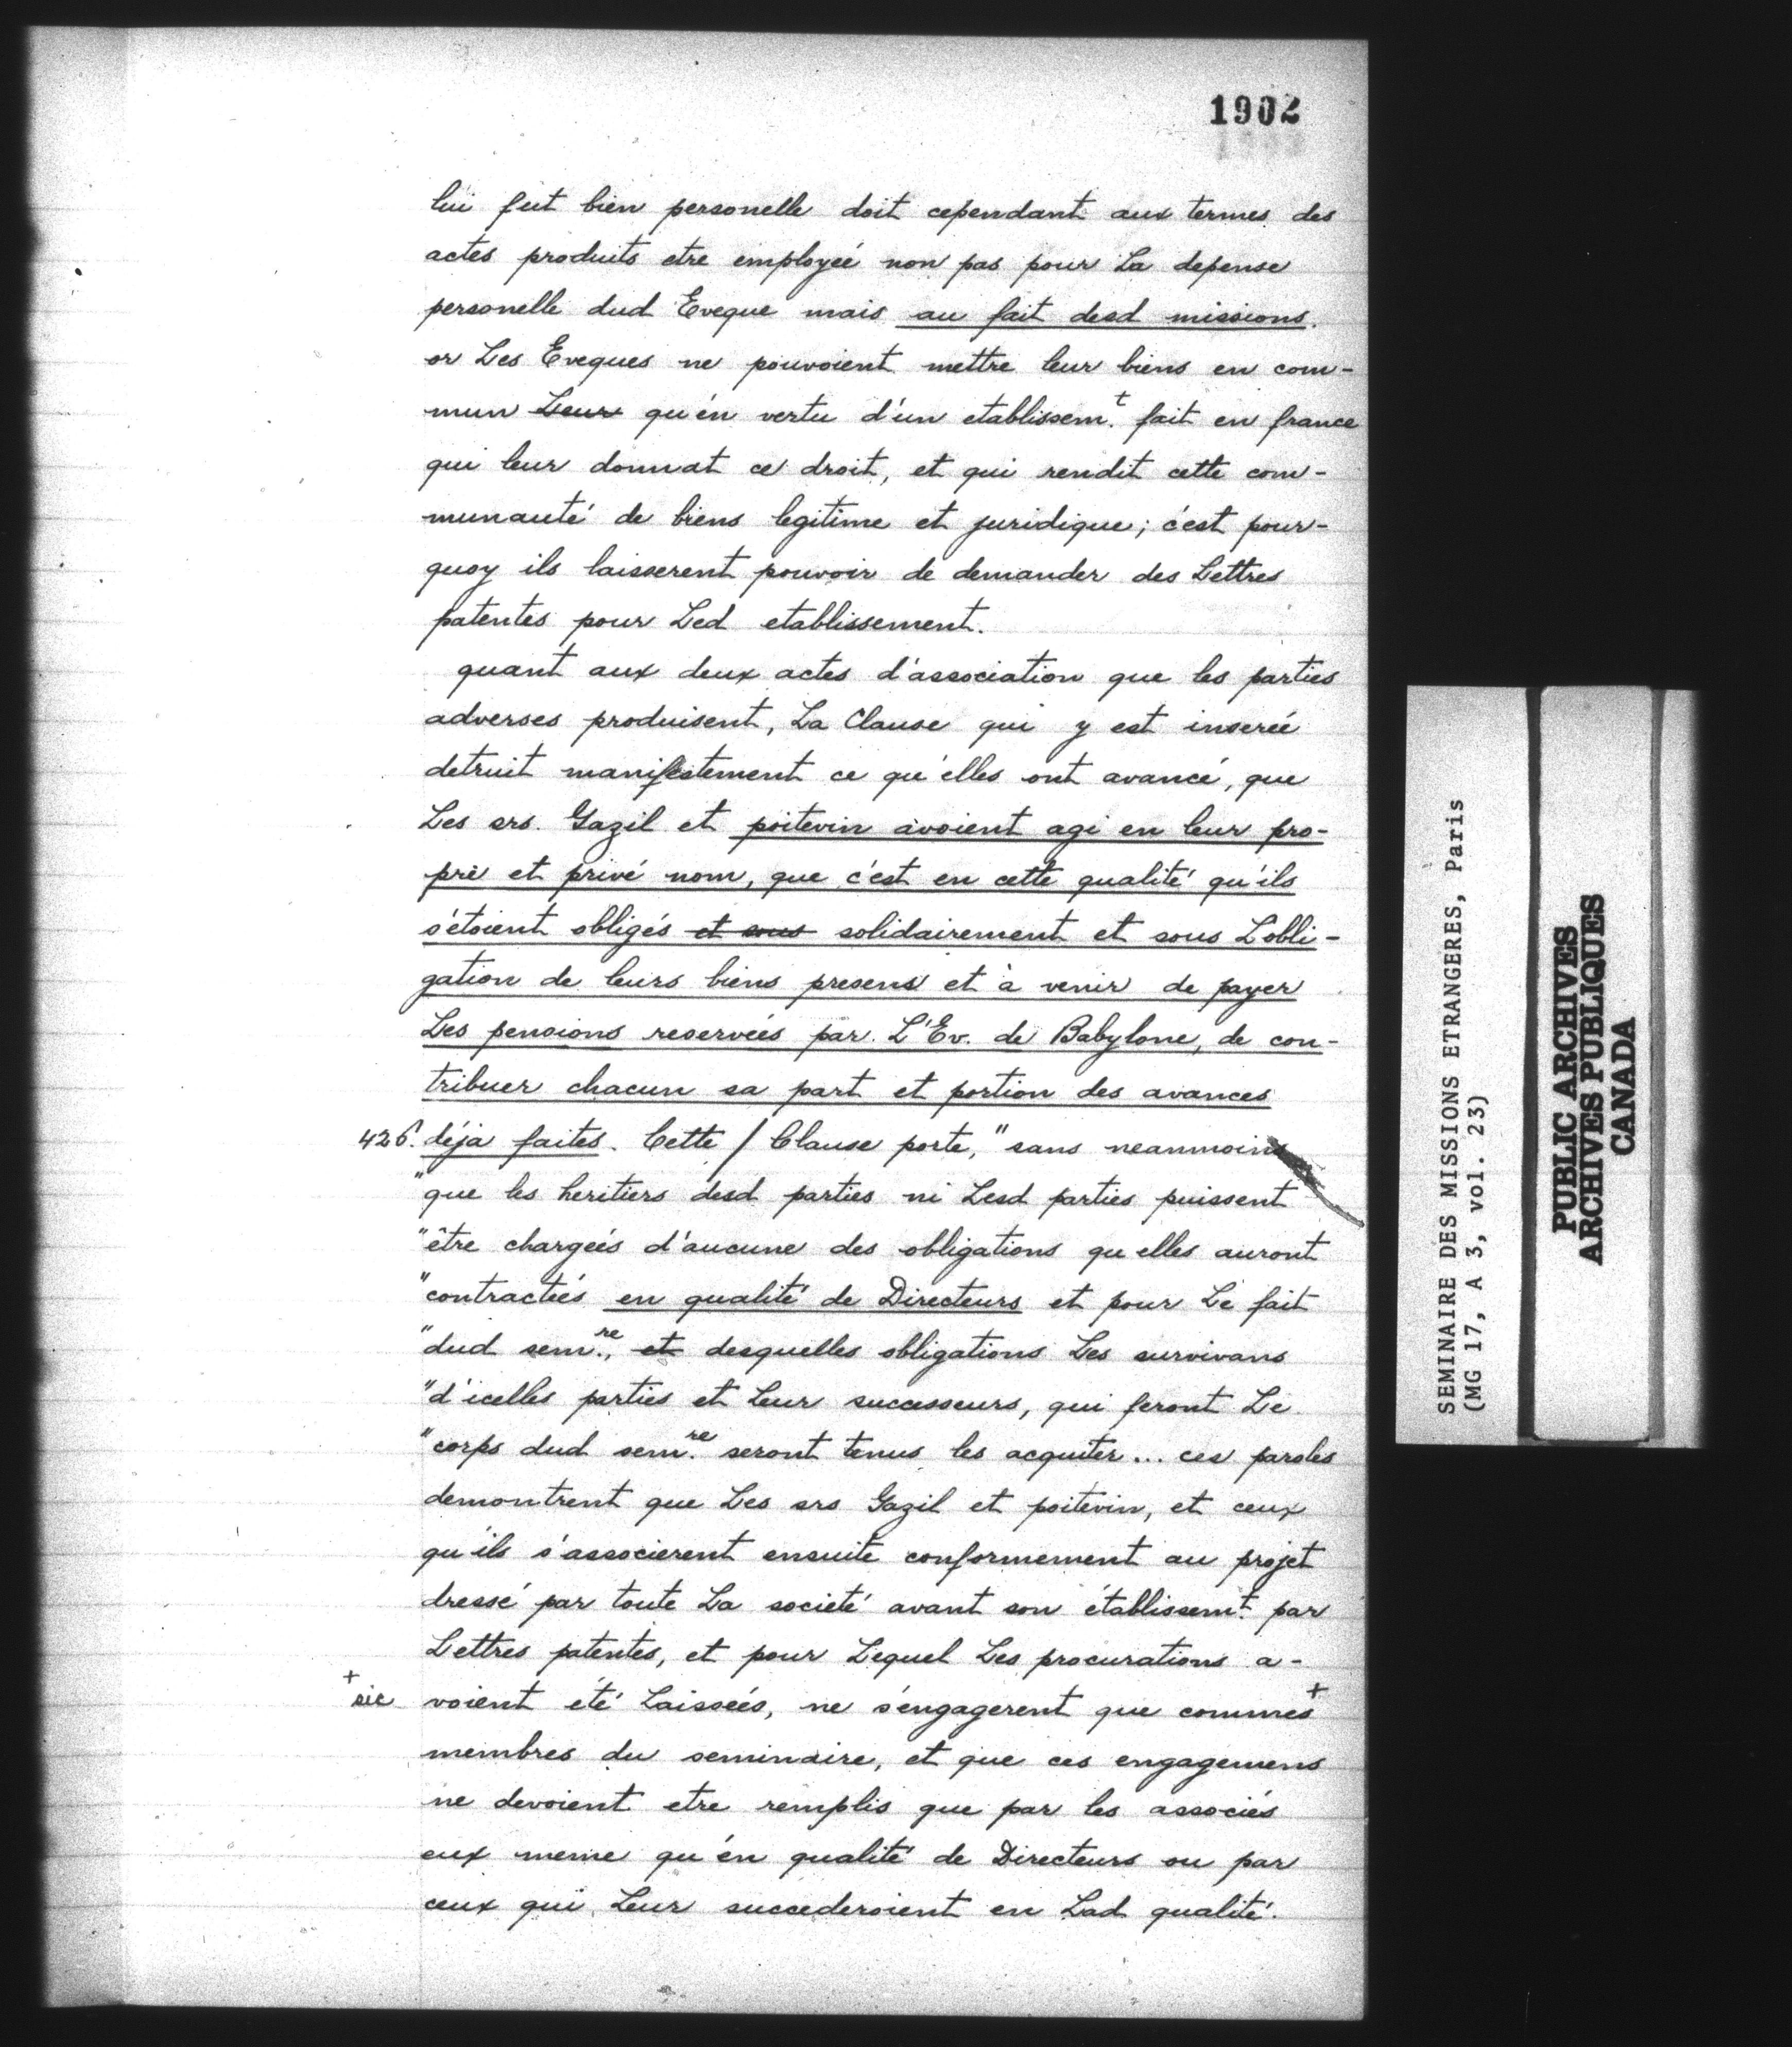 1902
lui fut bien personelle doit cependant aux termes des
actes produits etre employée non pas pour La depense
personelle dud Eveque mais au fait desd missions.
or Les Eveques ne pouvoient mettre leur biens en com-
mun Leur qu'en vertu d'un etablissem.t fait en france
qui leur donnat ce droit, et qui rendit cette com-
munauté de biens legitime et juridique; c'est pour-
quoy ils laisserent pouvoir de demander des Lettres
patentes pour Led etablissement.
quant aux deux actes d'association que les parties
adverses produisent, La Clause qui y est inserée
detruit manifestement ce qu'elles ont avancé, que
Les srs. Gazil et poitevin avoient agi en leur pro-
pre et privé nom, que c'est en cette qualité qu'ils
s'étoient obligés et sous solidairement et sous L'obli-
gation de leurs biens presens et à venir de payer
Les pensions reservées par L'Ev. de Babylone, de con-
tribuer chacun sa part et portion des avances
426. déja faites. Cette / Clause porte, "sans neanmoins
"que les heritiers desd parties ni Lesd parties puissent
"être chargées d'aucune des obligations qu'elles auront
"contractées en qualité de Directeurs et pour Le fait
"dud sem.re, et desquelles obligations Les survivans
"d'icelles parties et Leur successeurs, qui feront Le
"corps dud sem.re seront tenus les acquiter... ces paroles
demontrent que Les srs Gazil et poitevin, et ceux
qu'ils s'associerent ensuite conformement au projet
dressé par toute La societé avant son établissem.t par
Lettres patentes, et pour Lequel Les procurations a-
+ sic voient été Laissées, ne s'engagerent que commes +
membres du seminaire, et que ces engagemens
ne devoient etre remplis que par les associés
eux meme qu'en qualité de Directeurs ou par
ceux qui Leur succederoient en Lad qualité.
SEMINAIRE DES MISSIONS ETRANGERES, Paris
(MG 17, A 3, vol. 23)
PUBLIC ARCHIVES
ARCHIVES PUBLIQUES
CANADA